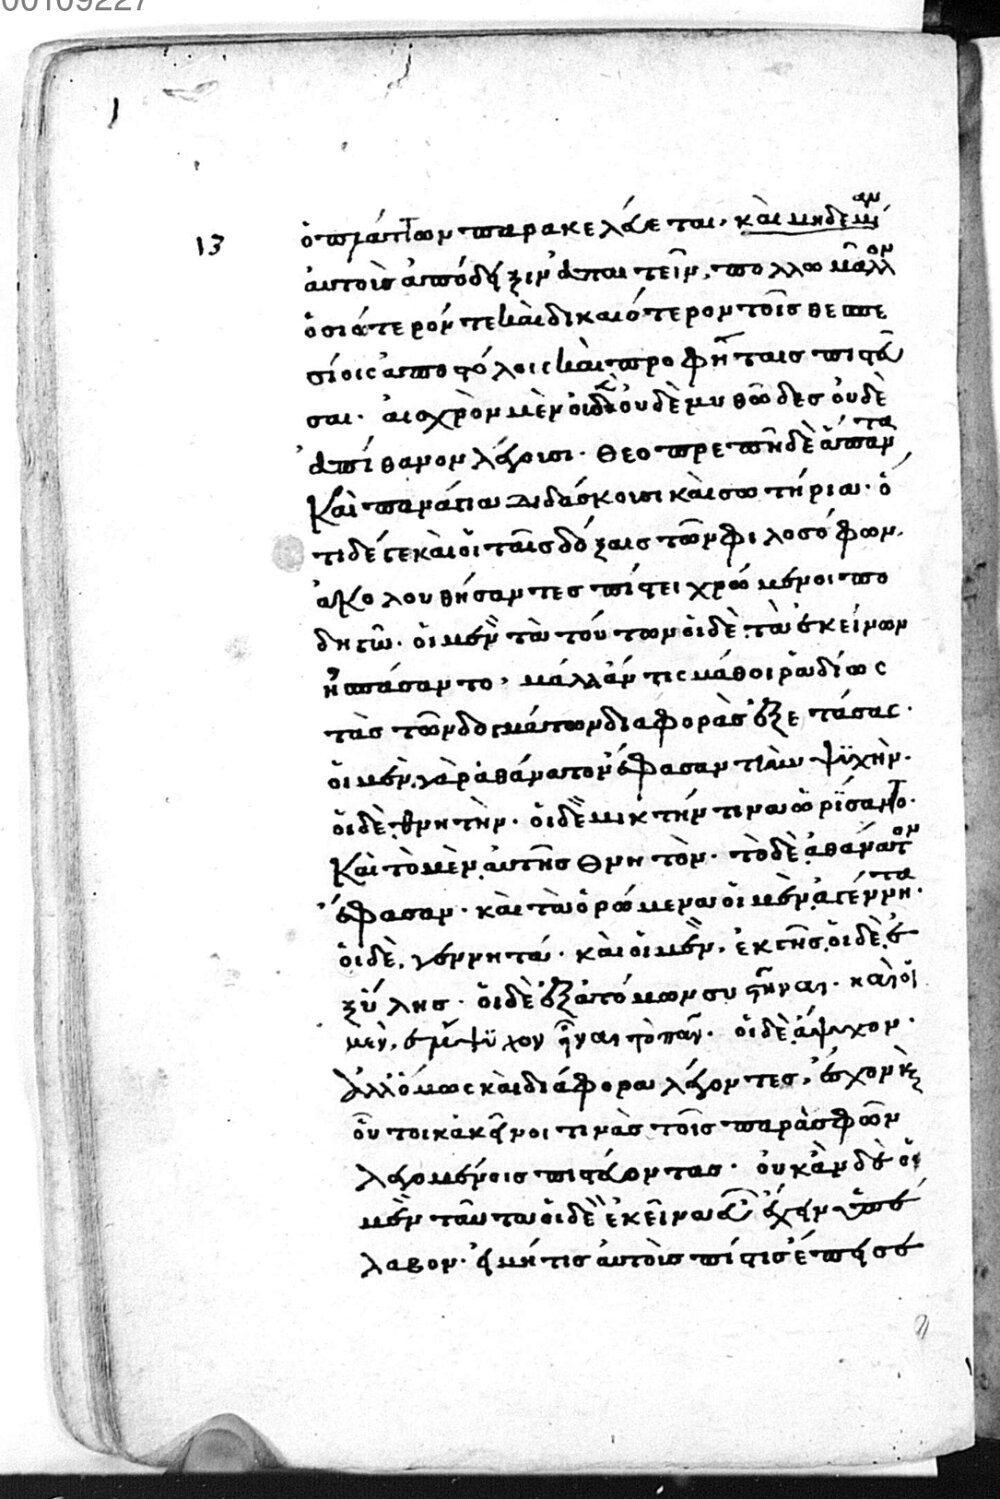 00109227
13
ὁ πλάτων παρακελεύεται, καὶ μηδεμίαν
αὐτοὺς ἀπόδειξιν ἀπαιτεῖν, πολλῶ μᾶλλον
ὁσιώτερόν τε καὶ δικαιότερον τοῖς θεσπε
σίοις ἀποστόλοις καὶ προφήταις πιστεῦ
σαι· αἰσχρὸν μὲν οὐδὲν οὐδὲ μυθῶδες οὐδὲ
ἀπίθανον λέγουσι· θεοπρεπῆ δὲ ἅπαντα
καὶ παναγία διδάσκουσι καὶ σωτήρια· ὅ
τι δέ γε καὶ οἱ ταῖς δόξαις τῶν φιλοσόφων
ἀκολουθήσαντες πίστει χρώμενοι πο
δηγῶ· οἱ μὲν τὰ τούτων οἱ δὲ τὰ ἐκείνων
ἠσπάσαντο, μάλ' ἄν τις μάθοι ῥαδίως
τὰς τῶν δογμάτων διαφορὰς ἐξετάσας·
οἱ μὲν γὰρ ἀθάνατον ἔφασαν τὴν ψυχὴν·
οἱ δὲ θνητὴν· οἱ δὲ μικτήν τινα ὡρίσαντο·
καὶ τὸ μὲν αὐτῆς θνητὸν· τὸ δὲ ἀθάνατον
ἔφασαν· καὶ τὰ ὁρώμενα οἱ μὲν ἀγέννητα·
οἱ δὲ, γεννητά· καὶ οἱ μὲν, ἐκ γῆς οἱ δὲ ἐ
ξ ὕλης· οἱ δὲ ἐξ ἀτόμων συστῆναι· καὶ οἱ
μὲν, ἔμψυχον εἶναι τὸ πᾶν· οἱ δὲ ἄψυχον·
ἀλλ' ὅμως καὶ διάφορα λέγοντες, ἔσχον καὶ
οὗτοι κἀκεῖνοι τινὰς τοῖς παρὰ σφῶν
λεγομένοις πιστεύοντας· οὐκ ἂν δὲ οἱ
μὲν ταῦτα οἱ δὲ ἐκεῖνα εὖ ἔχειν ὑπέ
λαβον· εἰ μή τις αὐτοὺς πίστις ἔπεισε